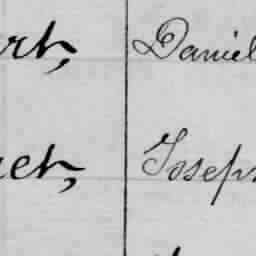 rt, Daniel
et, Joseph